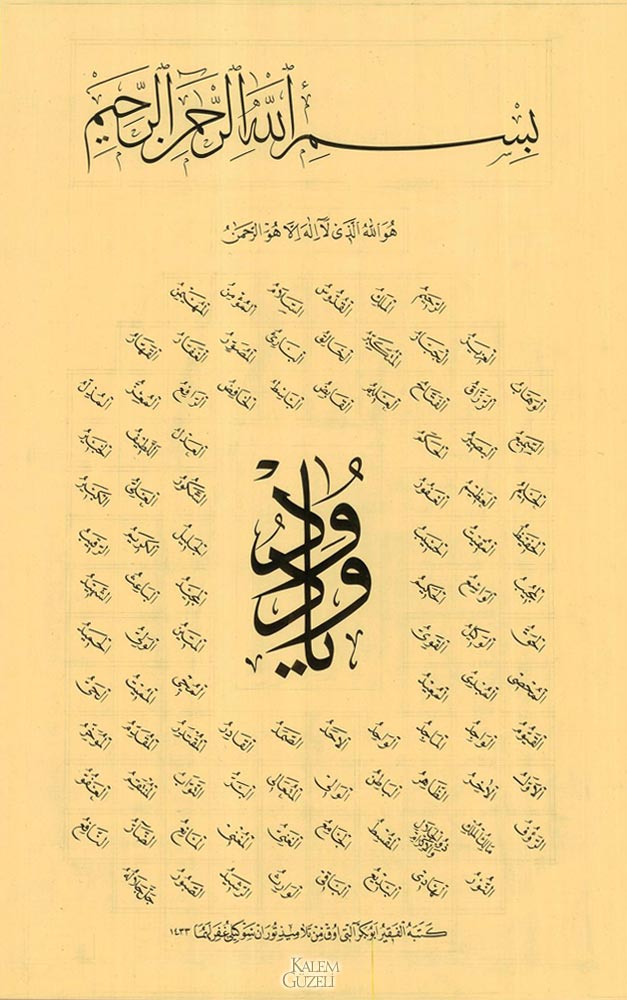 بِسْمِ اللهِ الرَّحْمٰنِ الرَّحِيمِ
هُوَ اللهُ الَّذِى لَا اِلٰهَ اِلَّا هُوَ الرَّحْمٰنُ
الرَّحِيمُ الْمَلِكُ الْقُدُّوسُ السَّلَامُ الْمُؤْمِنُ الْمُهَيْمِنُ
الْعَزِيزُ الْجَبَّارُ الْمُتَكَبِّرُ الْخَالِقُ الْبَارِئُ الْمُصَوِّرُ الْغَفَّارُ الْقَهَّارُ
الْوَهَّابُ الرَّزَّاقُ الْفَتَّاحُ الْعَلِيمُ الْقَابِضُ الْبَاسِطُ الْخَافِضُ الرَّافِعُ الْمُعِزُّ الْمُذِلُّ
السَّمِيعُ الْبَصِيرُ الْحَكَمُ الْعَدْلُ اللَّطِيفُ الْخَبِيرُ
الْحَلِيمُ الْعَظِيمُ الْغَفُورُ الشَّكُورُ الْعَلِىُّ الْكَبِيرُ
الْحَفِيظُ الْمُقِيتُ الْحَسِيبُ الْجَلِيلُ الْكَرِيمُ الرَّقِيبُ
الْمُجِيبُ الْوَاسِعُ الْحَكِيمُ الْمَجِيدُ الْبَاعِثُ الشَّهِيدُ
يَا وَدُودُ
الْحَقُّ الْوَكِيلُ الْقَوِىُّ الْمَتِينُ الْوَلِىُّ الْحَمِيدُ
الْمُحْصِى الْمُبْدِئُ الْمُعِيدُ الْمُحْيِى الْمُمِيتُ الْحَىُّ
الْقَيُّومُ الْوَاجِدُ الْمَاجِدُ الْوَاحِدُ الْاَحَدُ الصَّمَدُ الْقَادِرُ الْمُقْتَدِرُ الْمُقَدِّمُ الْمُؤَخِّرُ
الْاَوَّلُ الْاٰخِرُ الظَّاهِرُ الْبَاطِنُ الْوَالِى الْمُتَعَالِى الْبَرُّ التَّوَّابُ الْمُنْتَقِمُ الْعَفُوُّ
الرَّؤُفُ مَالِكُ الْمُلْكِ ذُو الْجَلَالِ وَالْاِكْرَامِ الْمُقْسِطُ الْجَامِعُ الْغَنِىُّ الْمُغْنِى الْمَانِعُ الضَّارُّ النَّافِعُ
النُّورُ الْهَادِى الْبَدِيعُ الْبَاقِى الْوَارِثُ الرَّشِيدُ الصَّبُورُ جَلَّ جَلَالُهُ
كَتَبَهُ الْفَقِيرُ اَبُوبَكْر اَلْتِى اُوق مِنْ تَلَامِيذِ تُورَان سَوْگِيلِى غُفِرَ لَهُمَا ١٤٣٣
KALEM
GÜZELİ